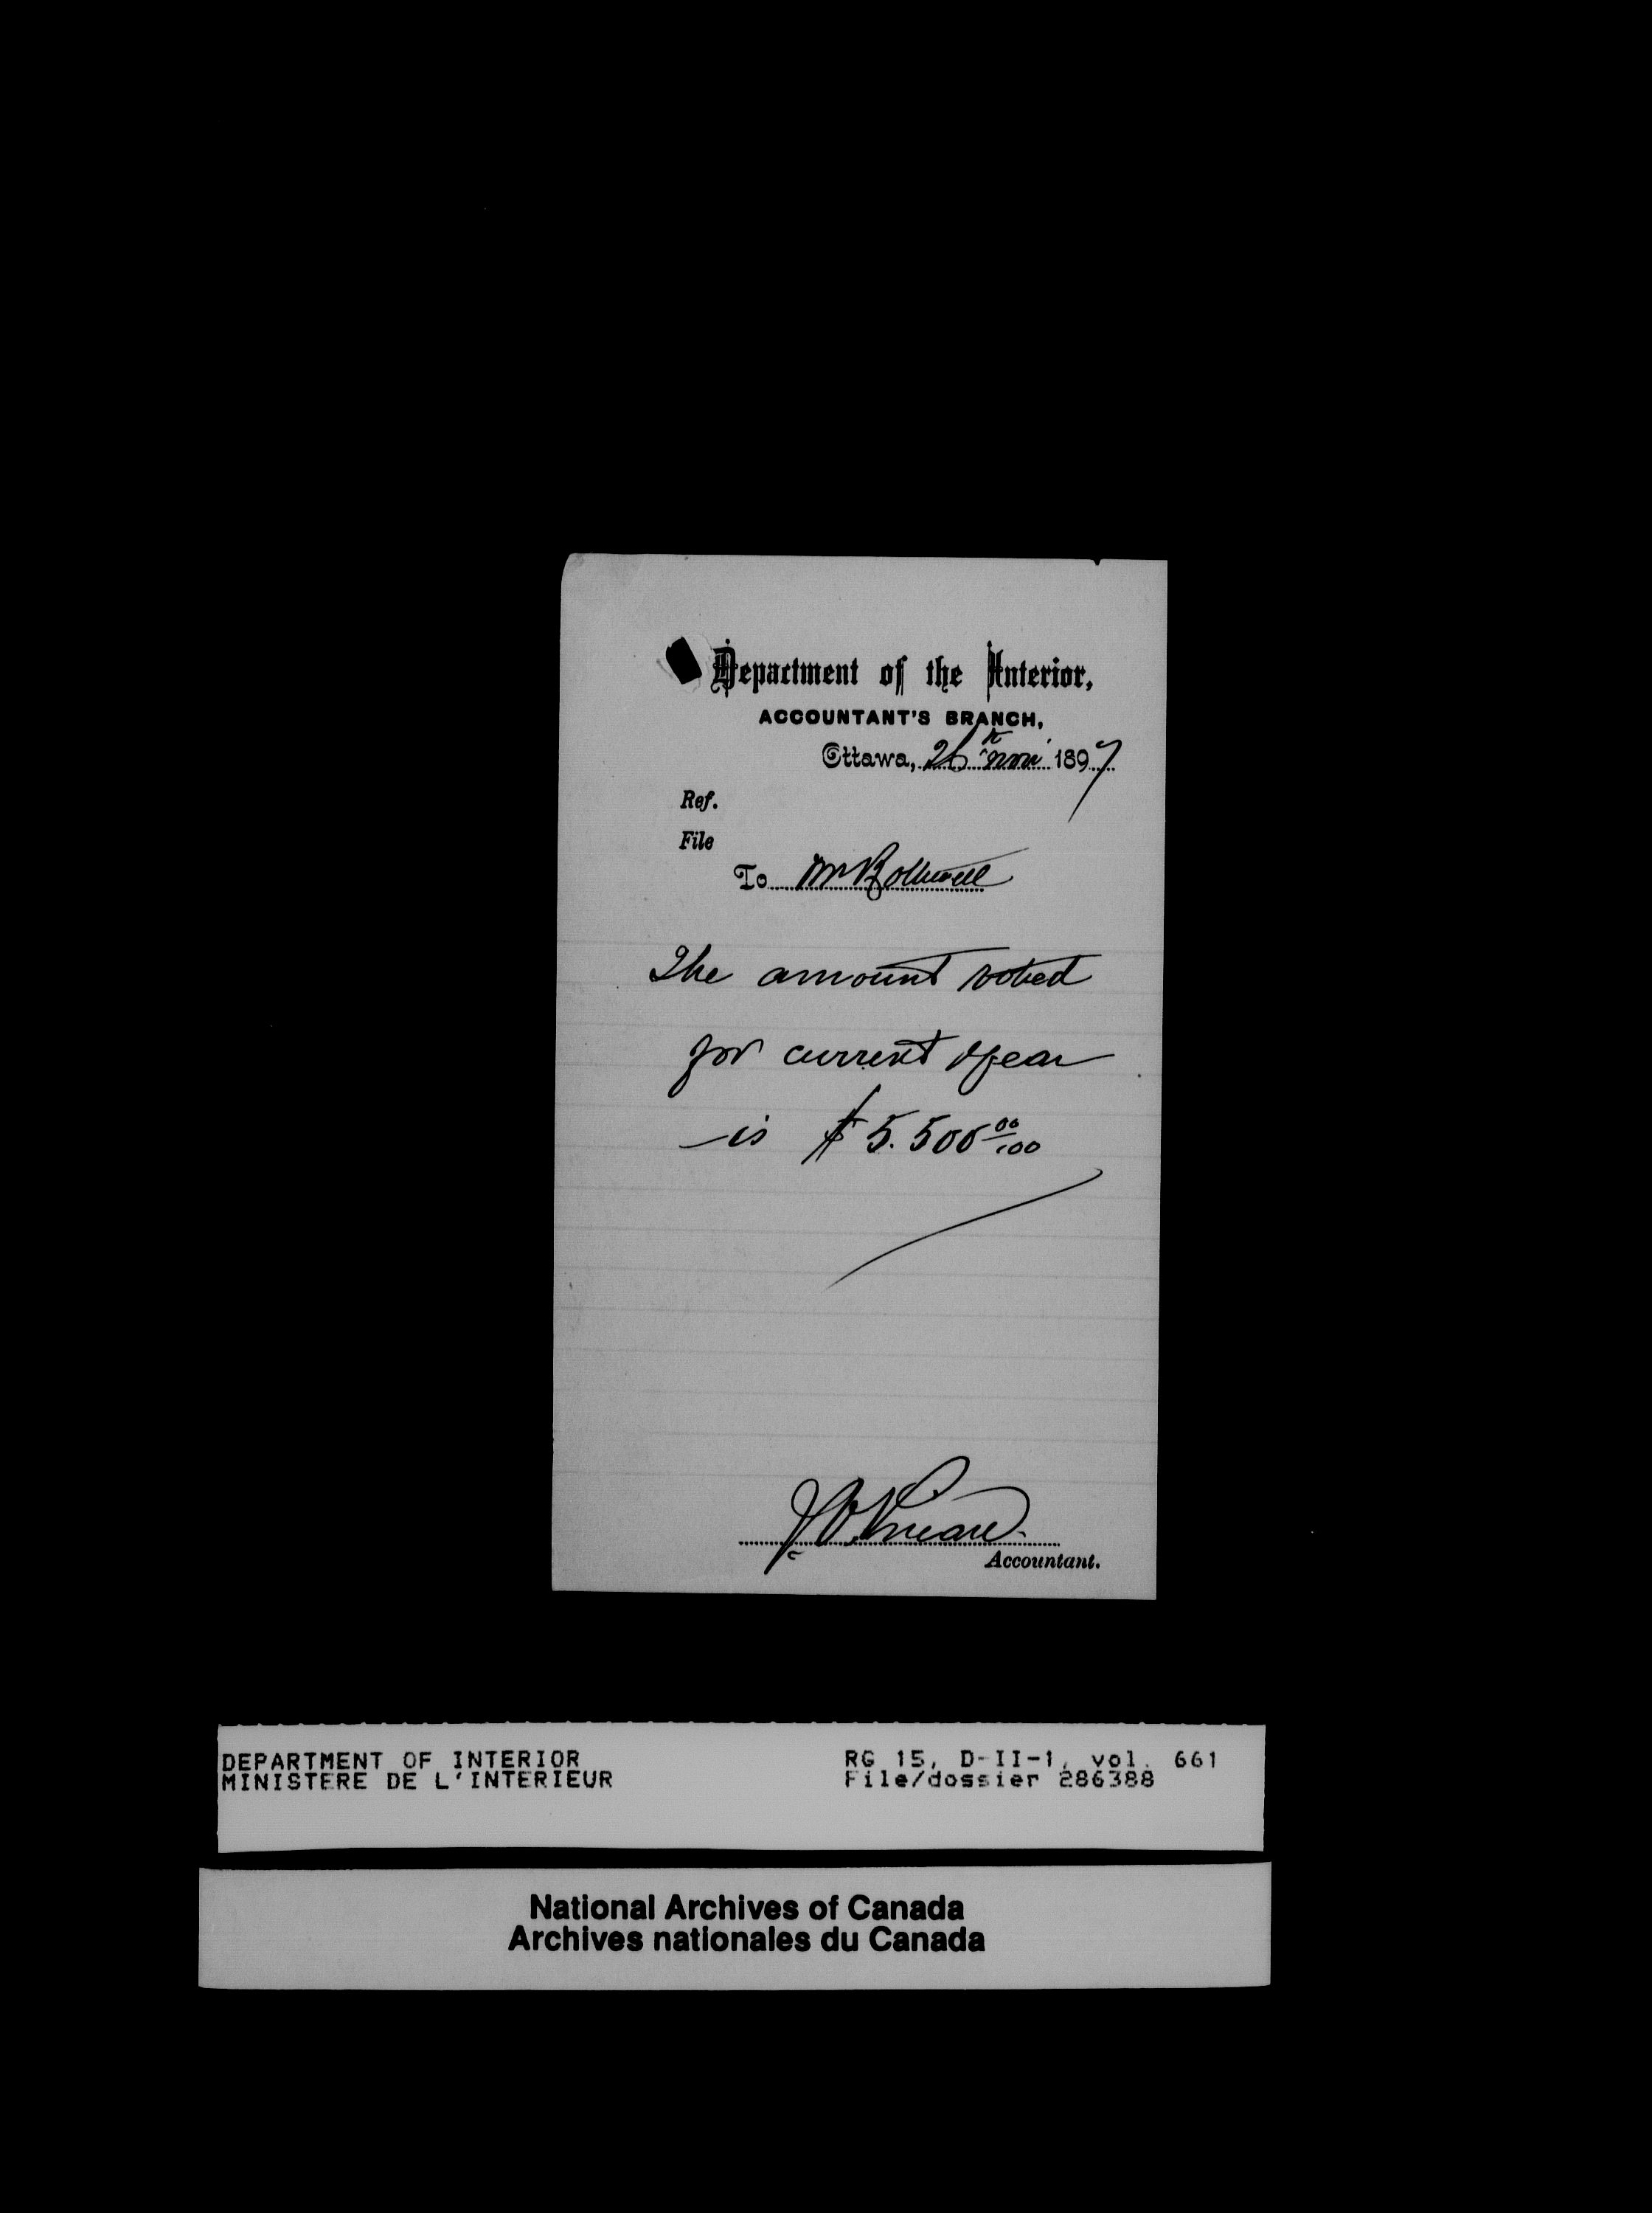 Department of the Interior,
ACCOUNTANT'S BRANCH,
Ottawa, 26th Nov 1897
Ref.
File
To Mr Rothwell
The amount voted
for current year
is $5.500 00/100
Accountant.
DEPARTMENT OF INTERIOR RG 15, D-II-1, vol. 661
MINISTERE DE L'INTERIEUR File/dossier 286388
National Archives of Canada
Archives nationales du Canada